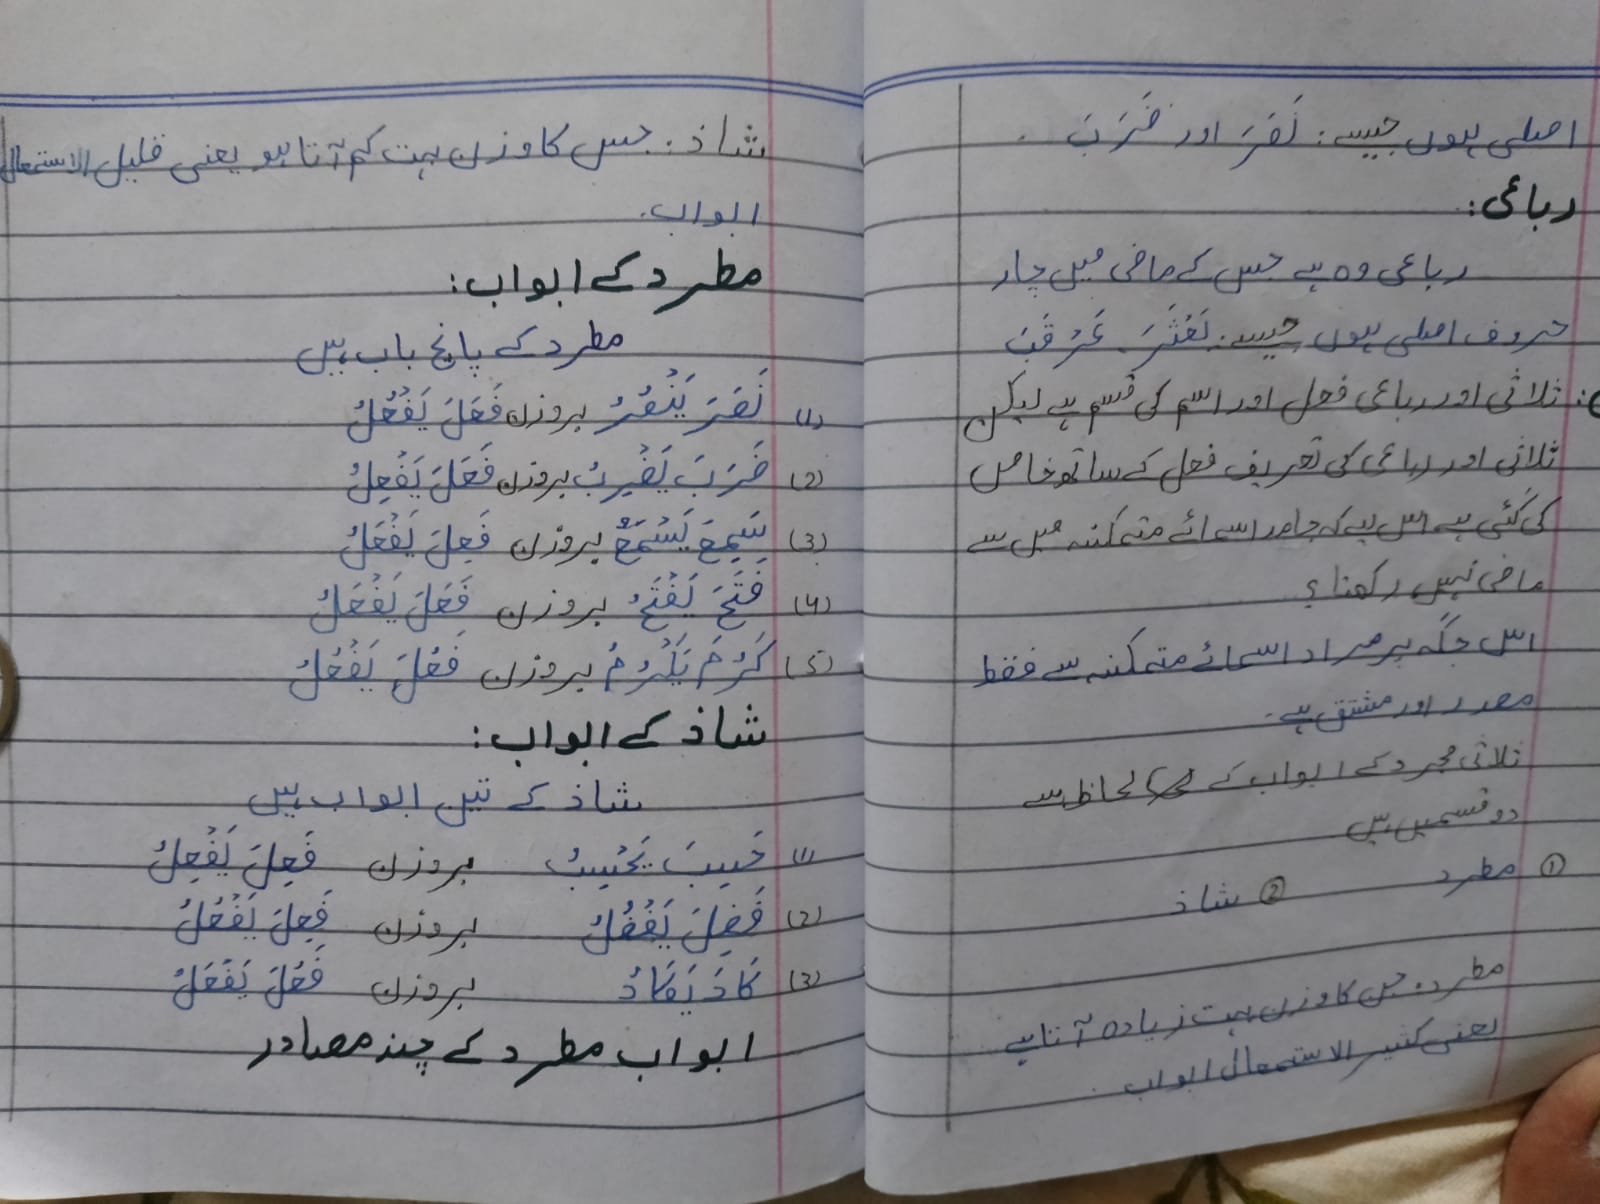 اصلی ہوں جیسے: نَصَرَ اور ضَرَبَ .
رباعی:
رباعی وہ ہے جس کے ماضی میں چار
حروف اصلی ہوں جیسے: بَعْثَرَ، عَرْقَبَ
ثلاثی اور رباعی فعل اور اسم کی قسم ہے لیکن
ثلاثی اور رباعی کی تعریف فعل کے ساتھ خاص
کی گئی ہے اس لیے کہ جامد اسمائے متمکنہ میں سے
ماضی نہیں رکھتا ؟
اس جگہ پر مراد اسمائے متمکنہ سے فقط
مصدر اور مشتق ہے۔
ثلاثی مجرد کے ابواب کے لحاظ سے
دو قسمیں ہیں
① مطرد ② شاذ
مطرد: جس کا وزن بہت زیادہ آتا ہے
یعنی کثیر الاستعمال ابواب .
شاذ: جس کا وزن بہت کم آتا ہو یعنی قلیل الاستعمال
ابواب.
مطرد کے ابواب:
مطرد کے پانچ باب ہیں
(1) نَصَرَ يَنْصُرُ بروزن فَعَلَ يَفْعُلُ
(2) ضَرَبَ يَضْرِبُ بروزن فَعَلَ يَفْعِلُ
(3) سَمِعَ يَسْمَعُ بروزن فَعِلَ يَفْعَلُ
(4) فَتَحَ يَفْتَحُ بروزن فَعَلَ يَفْعَلُ
(5) كَرُمَ يَكْرُمُ بروزن فَعُلَ يَفْعُلُ
شاذ کے ابواب:
شاذ کے تین ابواب ہیں
(1) حَسِبَ يَحْسِبُ بروزن فَعِلَ يَفْعِلُ
(2) فَضِلَ يَفْضُلُ بروزن فَعِلَ يَفْعُلُ
(3) كَادَ يَكَادُ بروزن فَعُلَ يَفْعَلُ
ابواب مطرد کے چند مصادر